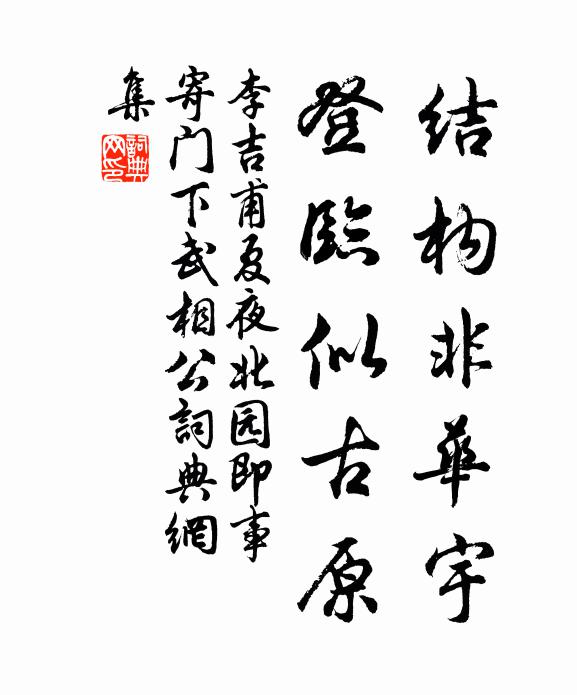 结构非華宇
登臨似古原
李吉甫夏夜北园即事
寄门下武相公詞典網
集
詞典网印